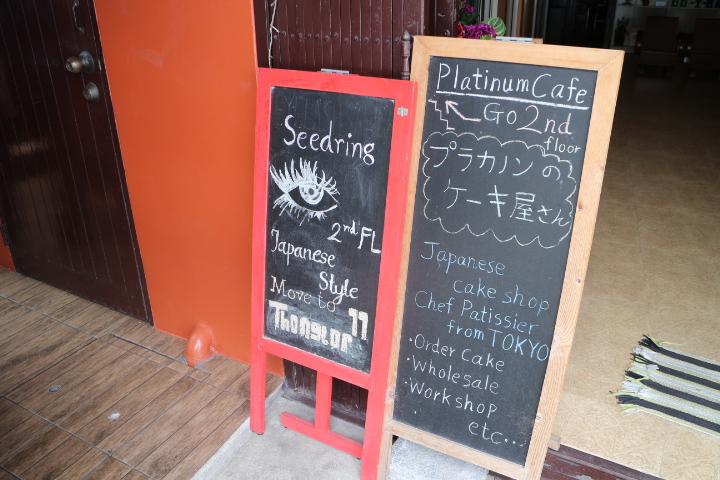 Seedring
2nd FL
Japanese
Style
Move to
Thonglor 11
Platinum Cafe
Go 2nd
floor
プラカノンの
ケーキ屋さん
Japanese
cake shop
Chef Patissier
from TOKYO
・Order cake
・Wholesale
・Workshop
etc...